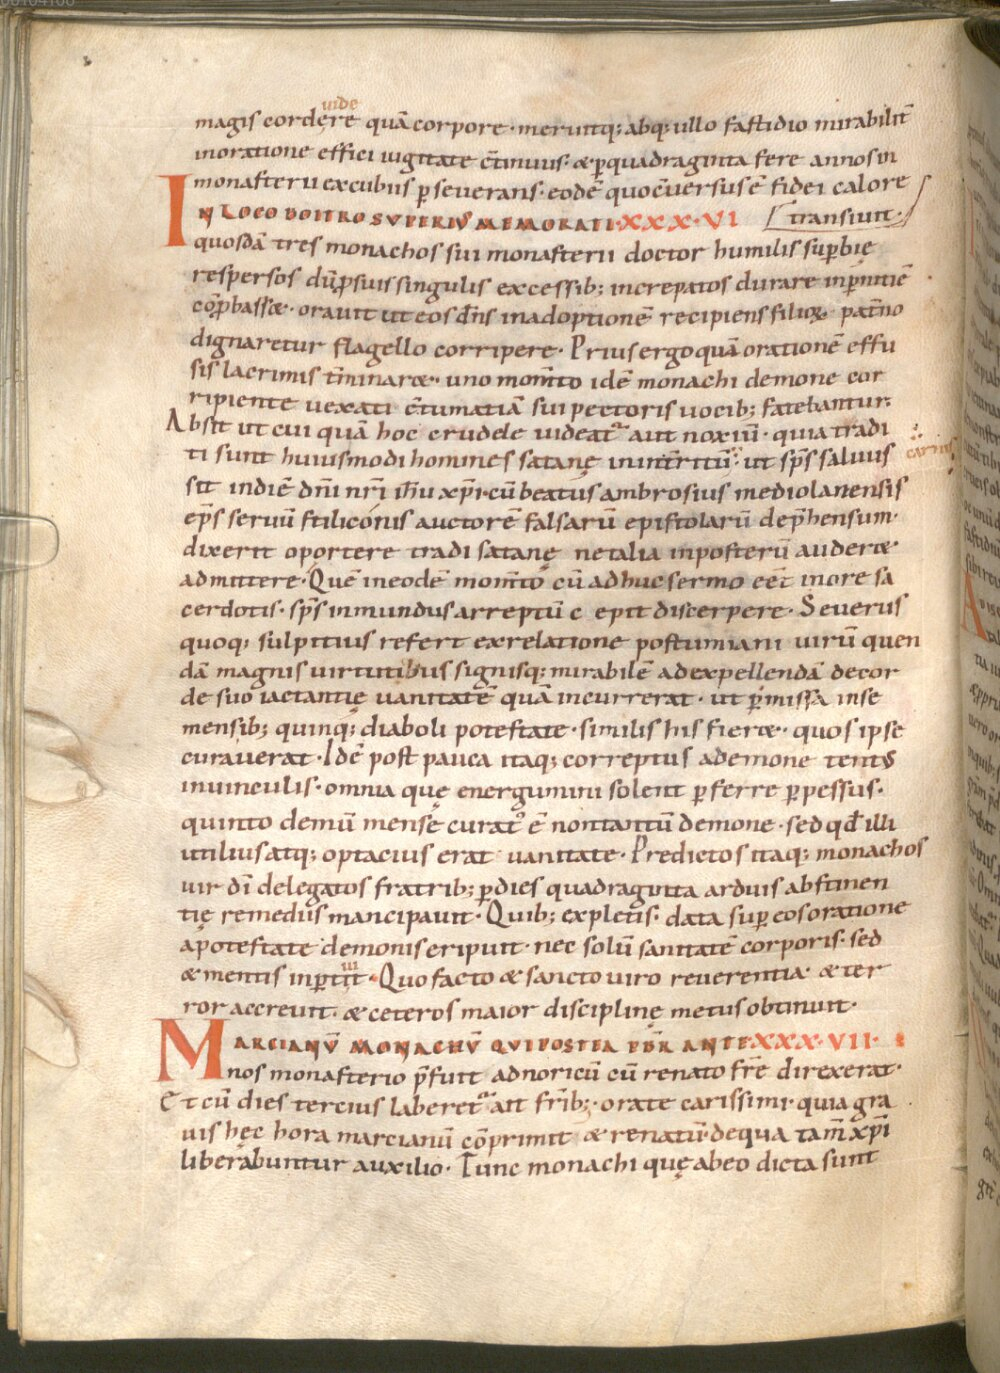 uide
magis cordęre quā corpore· meruitq; abq; ullo fastidio mirabilit̄
in oratione effici iugitate c̄tinuus· & p̱ quadraginta fere annos in
monasterii excubiis p̱severans· eodē quo c̄versus ē fidei calore
IN LOCO BOITRO SVPERIVS MEMORATI·XXX·VI transiuit·
quosdā tres monachos sui monasterii doctor humilis sup̱bię
respersos dū p̱ suis singulis excessib; increpatos durare in p̱nitiē
cōp̱bass&· orauit ut eos dn̄s in adoptionē recipiens filioꝝ pat̄no
dignaretur flagello corripere· Prius ergo quā orationē effu
sis lacrimis t̄minar&· uno mom̄to idē monachi demone cor
ripiente uexati c̄tumatiā sui pectoris uocib; fatebantur·
Absit ut cui quā hoc crudele uideat᷒ aut noxiū· quia tradi
ti sunt huiusmodi homines satanę in int̄ritū· ut sp̄s saluus
carnis
sit in diē dn̄i nr̄i ih̄u xp̄i· cū beatus ambrosius mediolanensis
ep̄s seruū stiliconis auctorē falsarū epistolarū dep̄hensum·
dixerit oportere tradi satanę ne talia in posterū auder&
admittere· Quē in eodē mom̄to cū adhuc sermo eēt in ore sa
cerdotis· sp̄s inmundus arreptū c epit discerpere· Severus
quoq; sulpitius refert ex relatione postumiani uirū quen
dā magnis uirtutibus signisq; mirabilē ad expellendā de cor
de suo iactantię uanitatē quā incurrerat· ut p̄missa in se
mensib; quinq; diaboli potestate· similis his fier&· quos ipse
curauerat· Idē post pauca itaq; correptus a demone tentus
in uinculis· omnia quę energumini solent p̱ferre p̱pessus·
quinto demū mense curat᷒ ē non tantū demone· sed qđ illi
utilius atq; optacius erat uanitate· Predictos itaq; monachos
uir dī delegatos fratrib; p̱ dies quadraginta arduis abstinen
tię remediis mancipauit· Quib; expletis· data sup̱ eos oratione
a potestate demonis eripuit· nec solū sanitatē corporis· sed
iu
& mentis inp̱tiit· Quo facto & sancto uiro reverentia & ter
ror accreuit· & ceteros maior disciplinę metus obtinuit·
MARCIANV̄ MONACHV̄ QUI POSTEA PB̄R ANTE·XXX·VII·
nos monasterio p̄fuit ad noricū cū renato fr̄e direxerat·
Et cū dies tercius laberet᷒ ait fr̄ib;· orate carissimi· quia gra
uis hęc hora marcianū cōprimit & renatū· de qua tam̄ xp̄i
liberabuntur auxilio· Tunc monachi quę ab eo dicta sunt